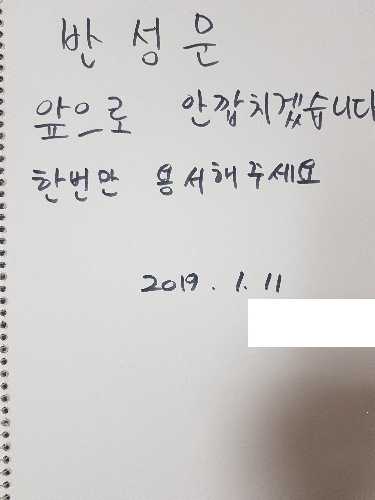 반성문
앞으로 안깝치겠습니다
한번만 용서해주세요
2019. 1. 11